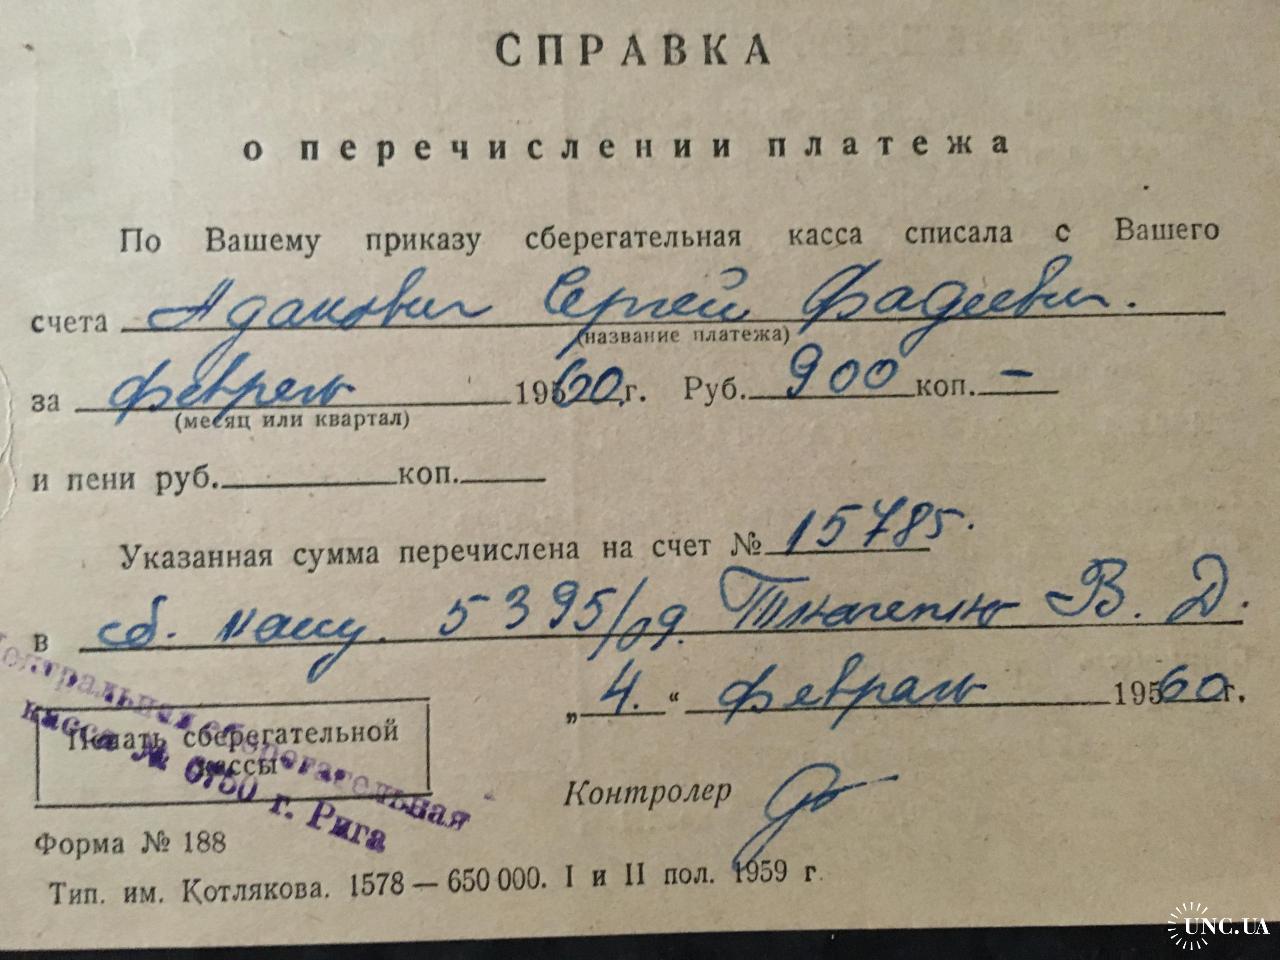 СПРАВКА
о перечислении платежа
По Вашему приказу сберегательная касса списала с Вашего
счета Адакович Сергей Фадеевич.
(название платежа)
за февраль 19560 г. Руб. 900 коп. –
(месяц или квартал)
и пени руб. коп.
Указанная сумма перечислена на счет № 15785.
в сб. кассу. 5395/09. Ткаченко В. Д.
„ 4. “ февраль 19560 г.
Центральная сберегательная
касса № 0750 г. Рига
Печать сберегательной
кассы
Контролер
Форма № 188
Тип. им. Котлякова. 1578 — 650 000. I и II пол. 1959 г.
UNC.UA